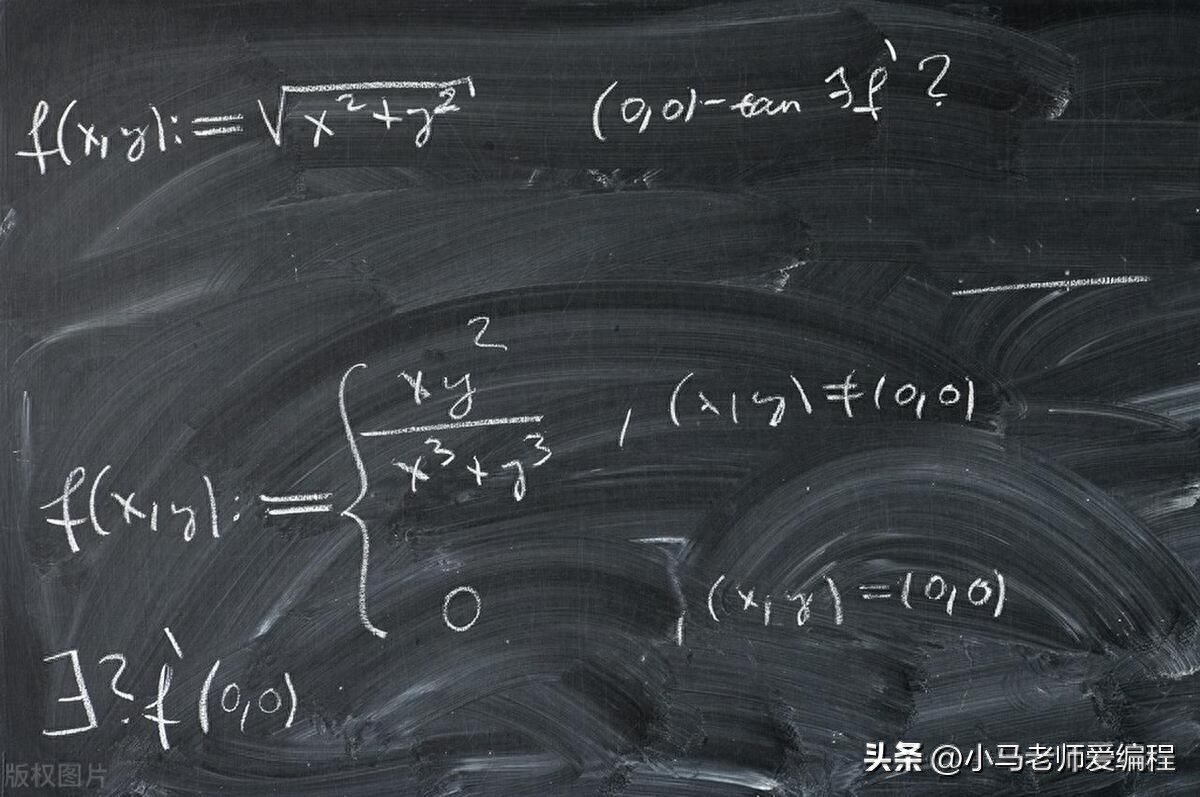 f(x,y):=√(x²+y²) (0,0)-tan ∃f' ?
f(x,y):={ xy²/(x³+y³) , (x,y)≠(0,0)
0 , (x,y)=(0,0)
∃? f'(0,0)
头条 @小马老师爱编程
版权图片